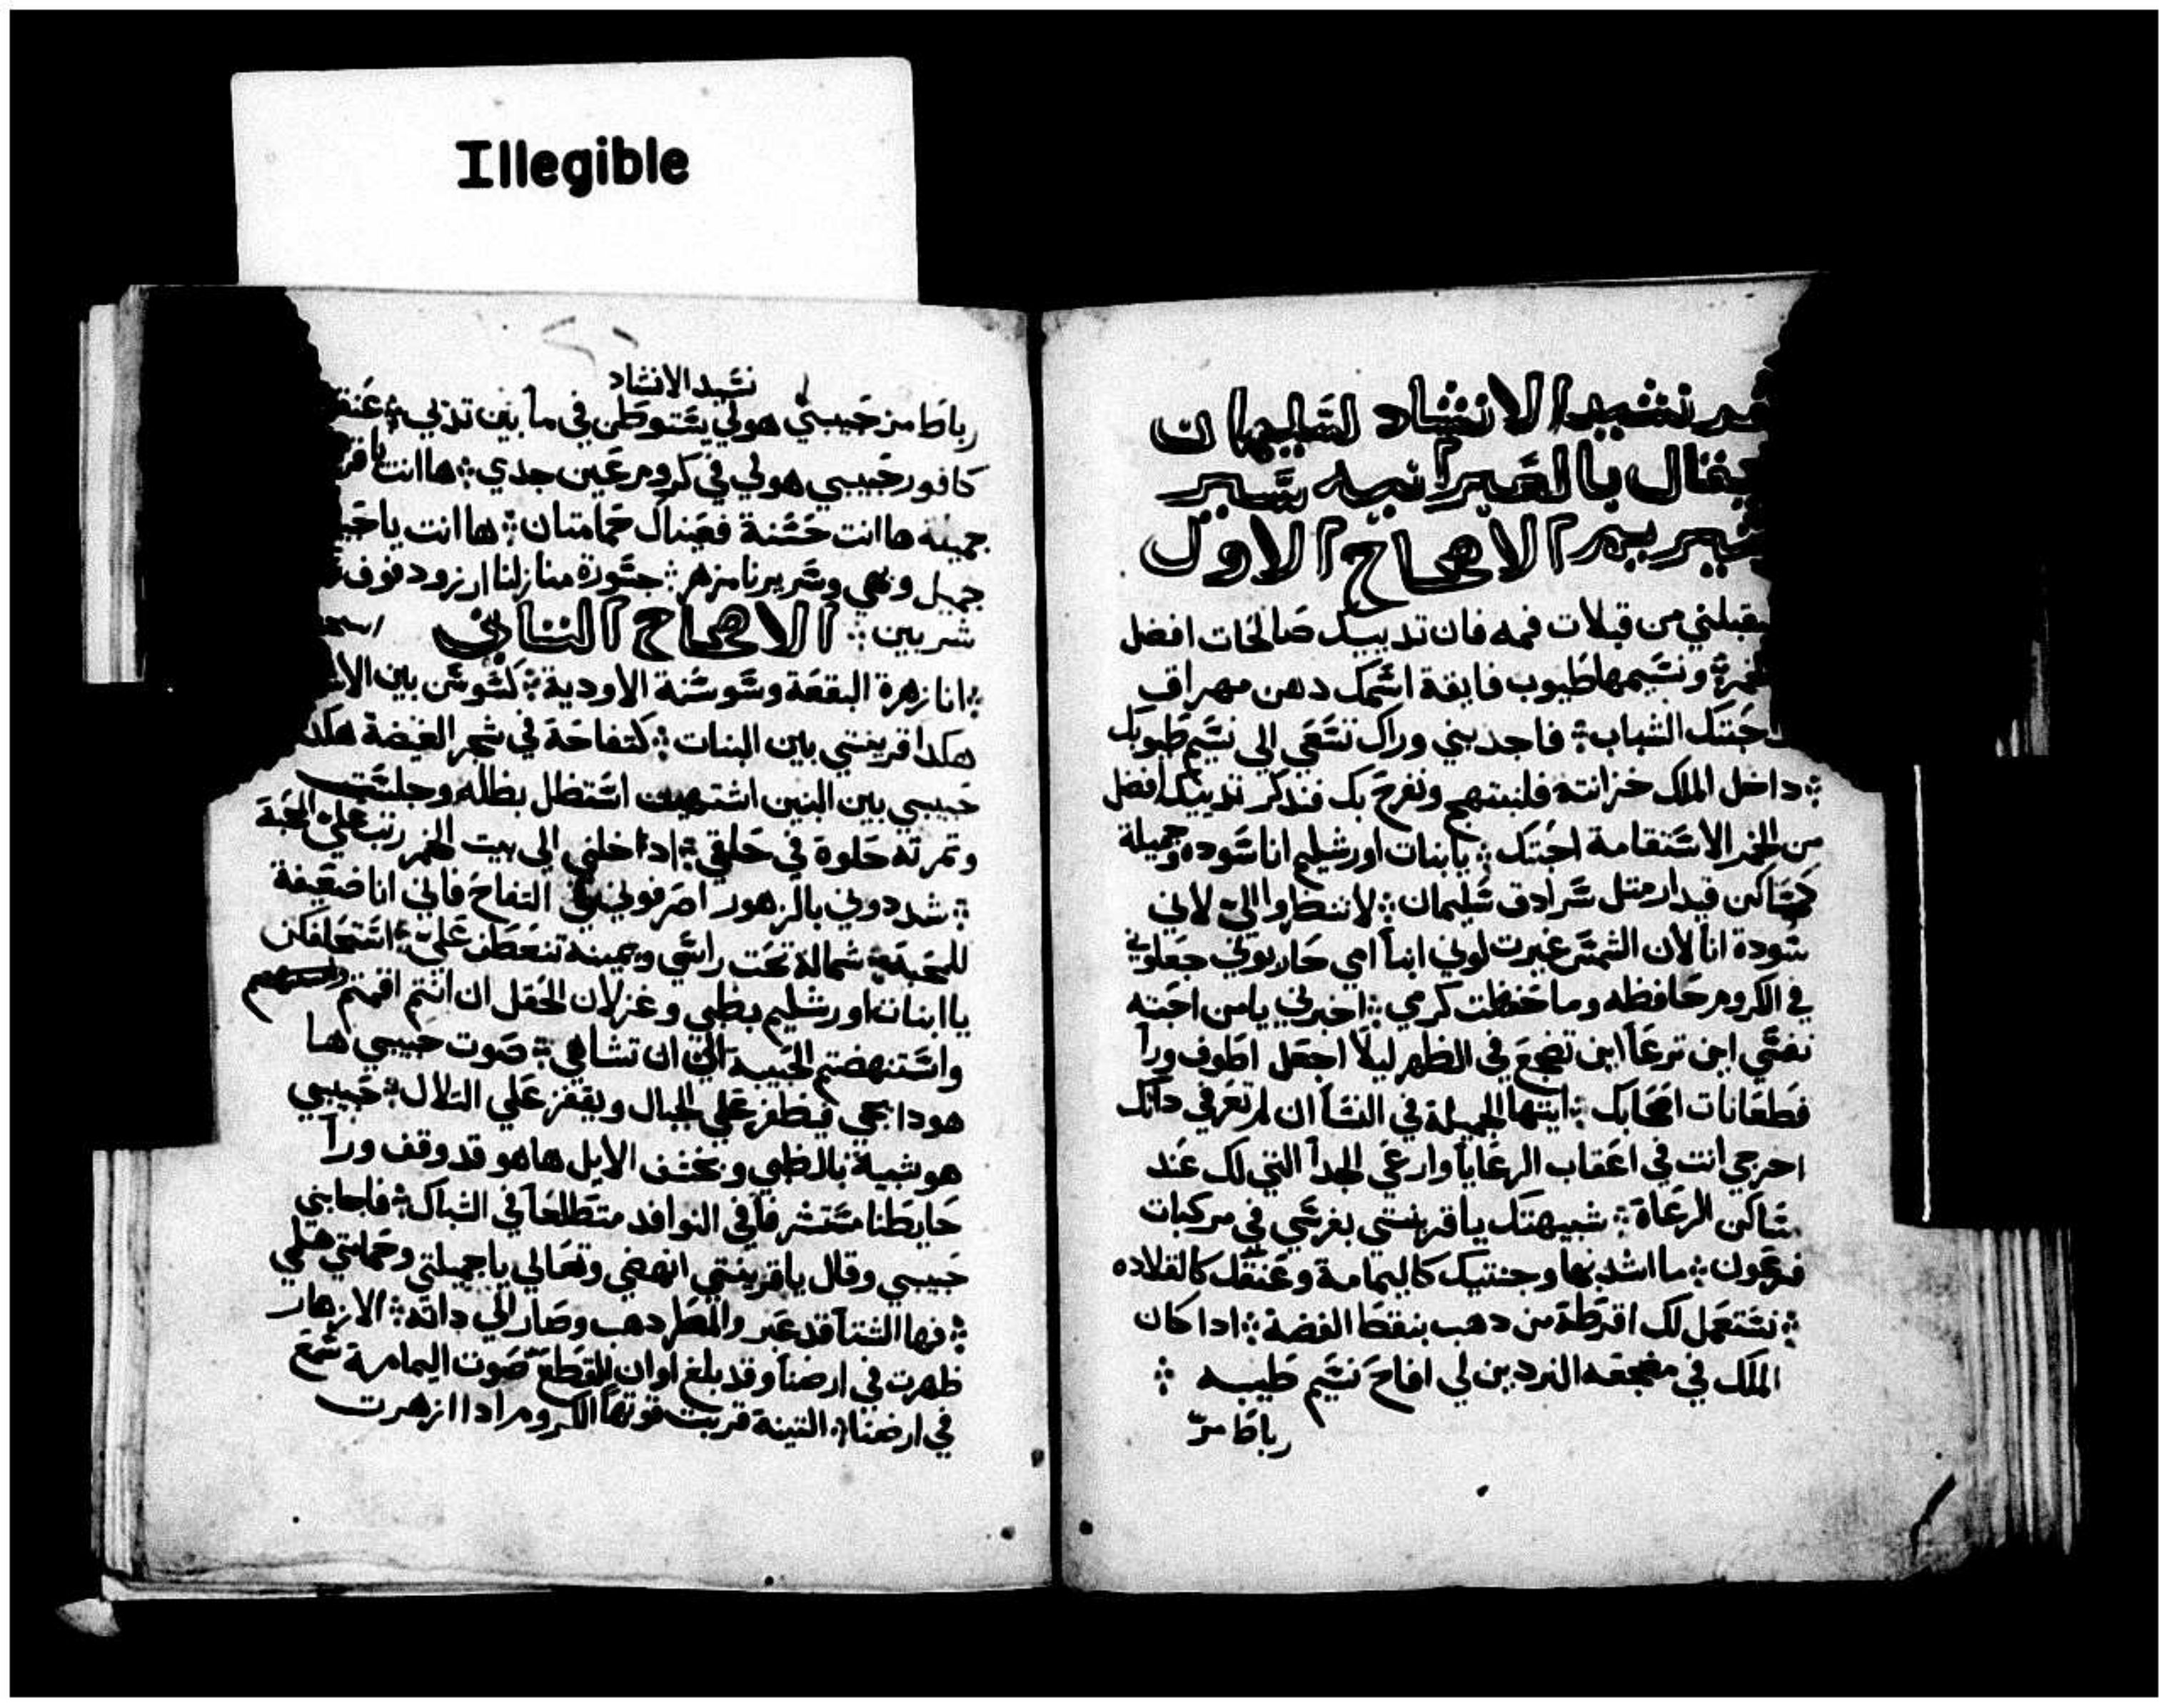 Illegible
نشيد الانشاد لسليمان
يقال بالعبرانيه سير
سيريم الاصحاح الاول
يقبلني من قبلات فمه فان تدييك صالحات افضل
ونسيمها طيوب فايقة اسمك دهن مهراق
حبتك الشباب فاجدبني وراك نسعي الي نسيم طيوبك
داخل الملك خزانته فلنبتهج ونفرح بك فندكر تدييك افضل
من الخمر الاستقامة احبتك يا بنات اورشليم انا سوده وجميلة
كمساكن قيدار متل سرادق سليمان لا تنظروا الي لاني
سودة انا لان الشمس غيرت لوني ابنا امي حاربوني جعلوني
في الكروم حافظه وما حفظت كرمي اخبرني يا من احبته
نفسي اين ترعا اين تضجع في الظهر ليلا اجعل اطوف ورا
قطعانات اصحابك ايتها الجميلة في النسا ان لم تعرفي داتك
اخرجي انت في اعقاب الرعايا وارعي الجدا التي لك عند
مساكن الرعاة شبيهتك يا قرينتي بفرسي في مركبات
فرعون ما اشد بها وجنتيك كاليمامة وعنقك كالقلاده
نستعمل لك اقرطة من دهب بنقط الفضة ادا كان
الملك في مضجعه النردين لي افاح نسيم طيبه
رباط مر
نشيد الانشاد
رباط مر حبيبي هو لي يستوطن في ما بين تديي عنقود
كافور حبيبي هو لي في كروم عين جدي ها انت يا
جميلة ها انت حسنة فعيناك حمامتان ها انت يا
جميل وبهي وسريرنا مزهر جسورة منازلنا ارز وسقوف
شربين الاصحاح التاني
انا زهرة البقعة وسوسنة الاودية كسوسن بين
هكدا قرينتي بين البنات كتفاحة في شجر الغيضة هكدا
حبيبي بين البنين اشتهيت استظل بظله وجلست
وتمرته حلوة في حلقي ادا خلني الي بيت الخمر رتب علي المحبة
شددوني بالزهور اصرفوني في التفاح فاني انا ضعيفة
للمحبة شماله تحت راسي ويمينه تنعطف علي استحلفكن
يا ابنات اورشليم بظبي وغزلان الحقل ان انتم اقمتم
واستنهضتم الحبيبة الي ان تشا هي صوت حبيبي ها
هودا يجي فيظفر علي الجبال ويقفز علي التلال حبيبي
هو شبية بالظبي وبخشف الايل ها هو قد وقف ورا
حايطنا مستشرفا في النوافد متطلعا في الشباك فاجابني
حبيبي وقال يا قرينتي انهضي وتعالي يا جميلتي وحمامتي هلمي
فها الشتا قد عبر والمطر دهب وصار الي داته الازهار
ظهرت في ارضنا وقد بلغ اوان القطع صوت اليمامة سمع
في ارضنا التينة قربت قوتها الكروم ادا ازهرت